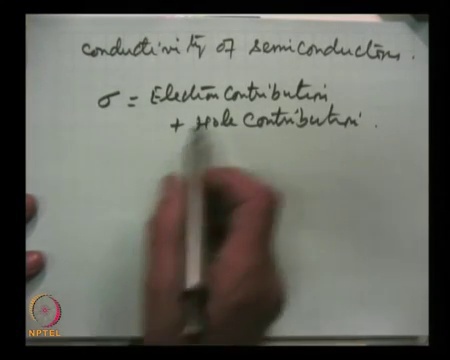 conductivity of semiconductors.
σ = Electron contribution
+ Hole Contribution.
NPTEL